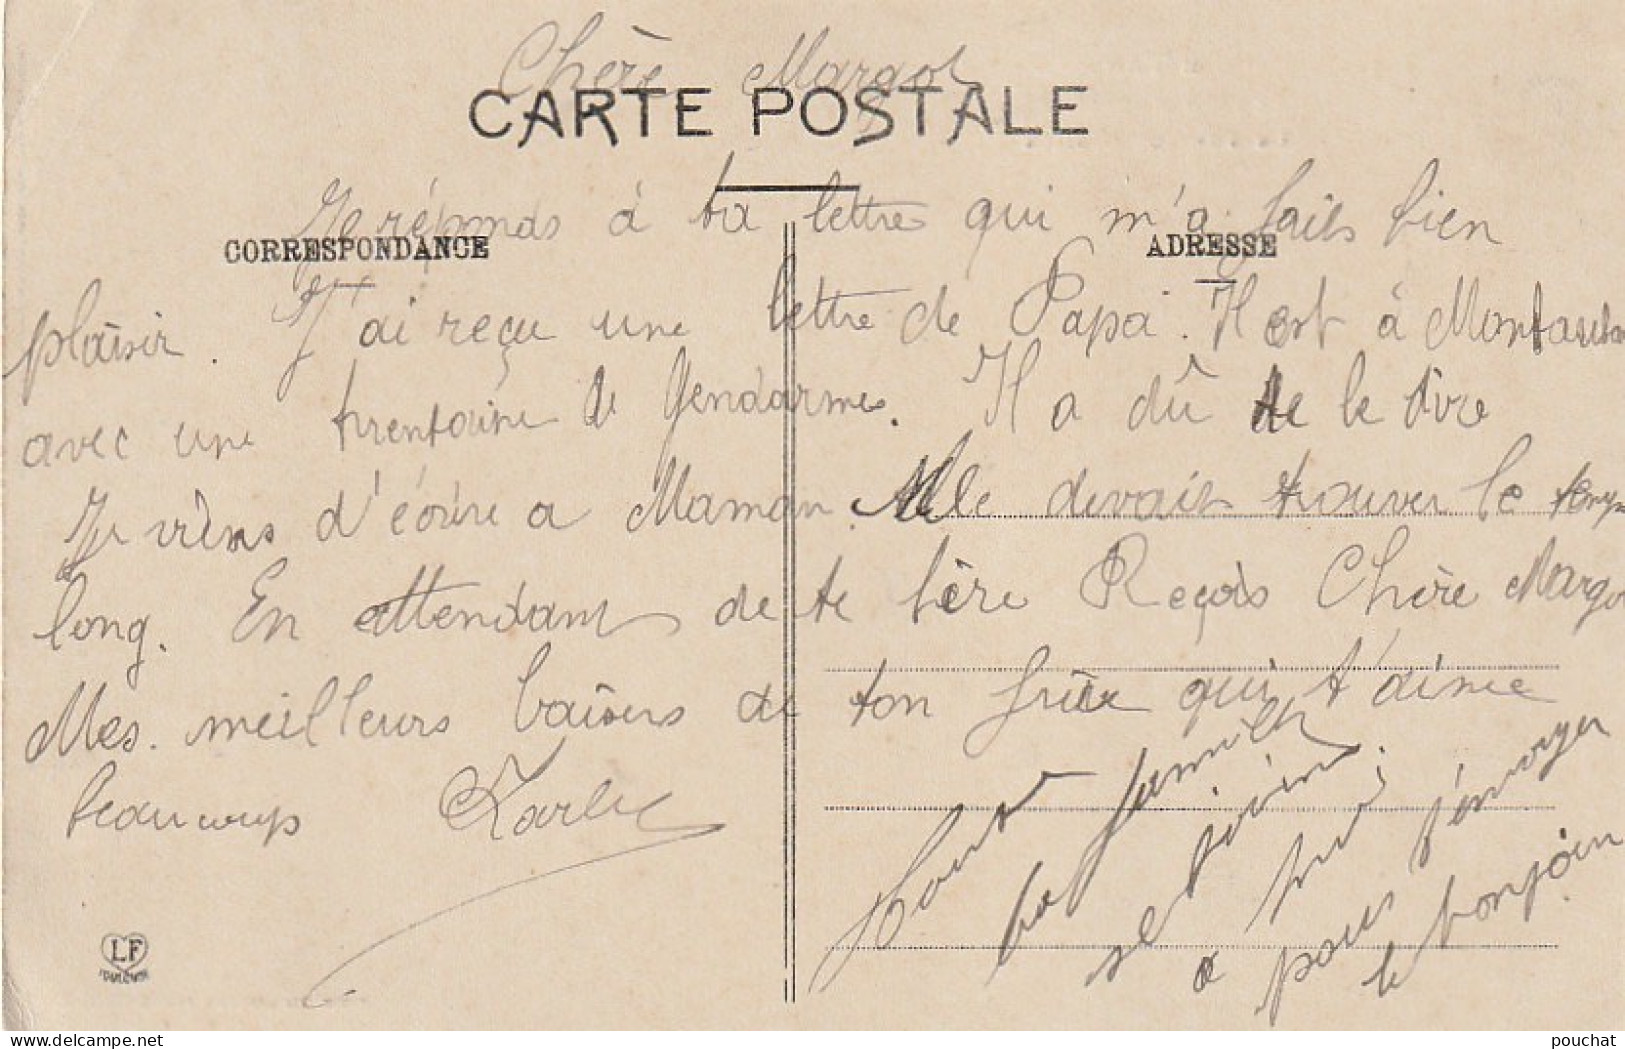 Chère Margot
CARTE POSTALE
Je réponds à ta lettre qui m'a fais bien
CORRESPONDANCE ADRESSE
plaisir. J'ai reçu une lettre de Papa. Il est à Montauban
avec une trentaine de Gendarmes. Il a dû te le dire
Je viens d'écrire a Maman. Elle devait trouver le temps
long. En attendant de te lire Reçois Chère Margot
Mes meilleurs baisers de ton frère qui t'aime
beaucoup
Toute
la famille
se joint
a moi
pour t'envoyer
le bonjour
LF
pouchat
delcampe.net